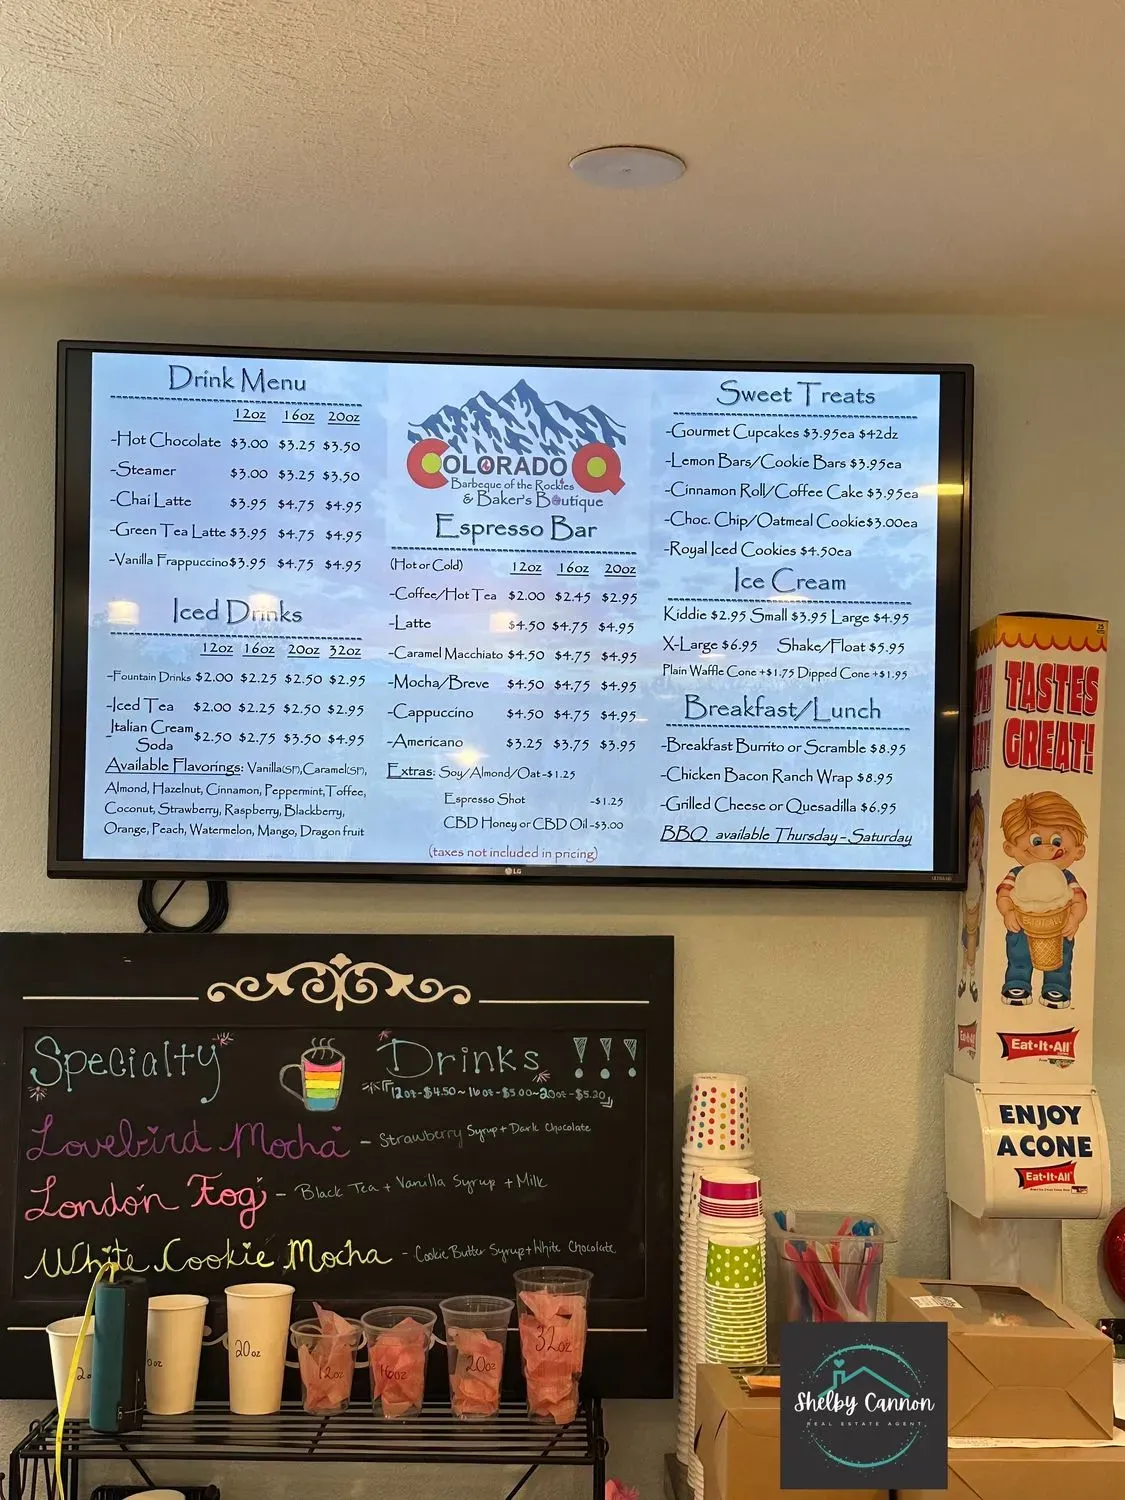 Drink Menu
12oz 16oz 20oz
-Hot Chocolate $3.00 $3.25 $3.50
-Steamer $3.00 $3.25 $3.50
-Chai Latte $3.95 $4.75 $4.95
-Green Tea Latte $3.95 $4.75 $4.95
-Vanilla Frappuccino $3.95 $4.75 $4.95
Iced Drinks
12oz 16oz 20oz 32oz
-Fountain Drinks $2.00 $2.25 $2.50 $2.95
-Iced Tea $2.00 $2.25 $2.50 $2.95
-Italian Cream
Soda $2.50 $2.75 $3.50 $4.95
Available Flavorings: Vanilla(SF), Caramel(SF),
Almond, Hazelnut, Cinnamon, Peppermint, Toffee,
Coconut, Strawberry, Raspberry, Blackberry,
Orange, Peach, Watermelon, Mango, Dragon fruit
COLORADO Q
Barbeque of the Rockies
& Baker's Boutique
Espresso Bar
(Hot or Cold) 12oz 16oz 20oz
-Coffee/Hot Tea $2.00 $2.45 $2.95
-Latte $4.50 $4.75 $4.95
-Caramel Macchiato $4.50 $4.75 $4.95
-Mocha/Breve $4.50 $4.75 $4.95
-Cappuccino $4.50 $4.75 $4.95
-Americano $3.25 $3.75 $3.95
Extras: Soy/Almond/Oat-$1.25
Espresso Shot -$1.25
CBD Honey or CBD Oil -$3.00
(taxes not included in pricing)
Sweet Treats
-Gourmet Cupcakes $3.95ea $42dz
-Lemon Bars/Cookie Bars $3.95ea
-Cinnamon Roll/Coffee Cake $3.95ea
-Choc. Chip/Oatmeal Cookie $3.00ea
-Royal Iced Cookies $4.50ea
Ice Cream
Kiddie $2.95 Small $3.95 Large $4.95
X-Large $6.95 Shake/Float $5.95
Plain Waffle Cone +$1.75 Dipped Cone +$1.95
Breakfast/Lunch
-Breakfast Burrito or Scramble $8.95
-Chicken Bacon Ranch Wrap $8.95
-Grilled Cheese or Quesadilla $6.95
BBQ available Thursday-Saturday
LG
TASTES
GREAT!
EAT-IT-ALL
Eat·It·All
ENJOY
A CONE
Eat·It·All
Specialty Drinks !!!
12oz-$4.50~16oz-$5.00~20oz-$5.20
Lovebird Mocha - Strawberry Syrup + Dark Chocolate
London Fog - Black Tea + Vanilla Syrup + Milk
White Cookie Mocha - Cookie Butter Syrup + White Chocolate
20oz
12oz
16oz
20oz
32oz
Shelby Cannon
REAL ESTATE AGENT